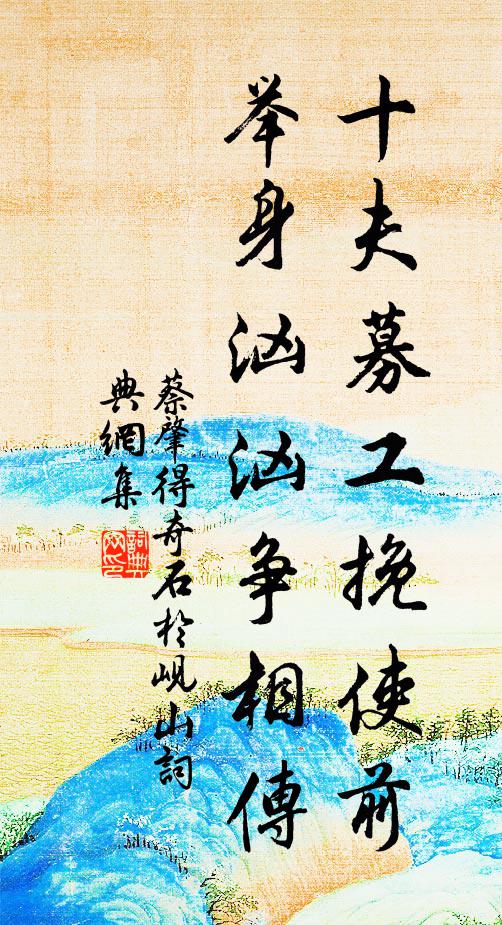 十夫募工挽使前
举身汹汹争相傳
蔡肇得奇石於峴山詞
典網集
詞典網印